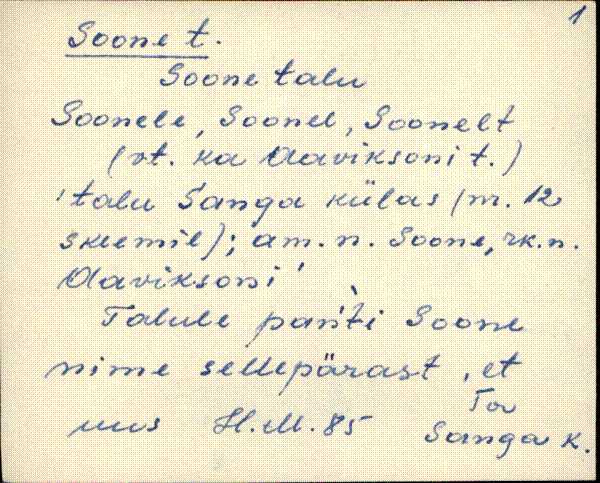 1
Soone t.
Soone talu
Soonele, Soonel, Soonelt
(vt. ka Aaviksoni t.)
'talu Sanga külas (nr. 12
skeemil); am. n. Soone, rk. n.
Aaviksoni'
Talule paǹti Soone
nime sellepärast, et
Tor
uus H.M.85 Sanga k.